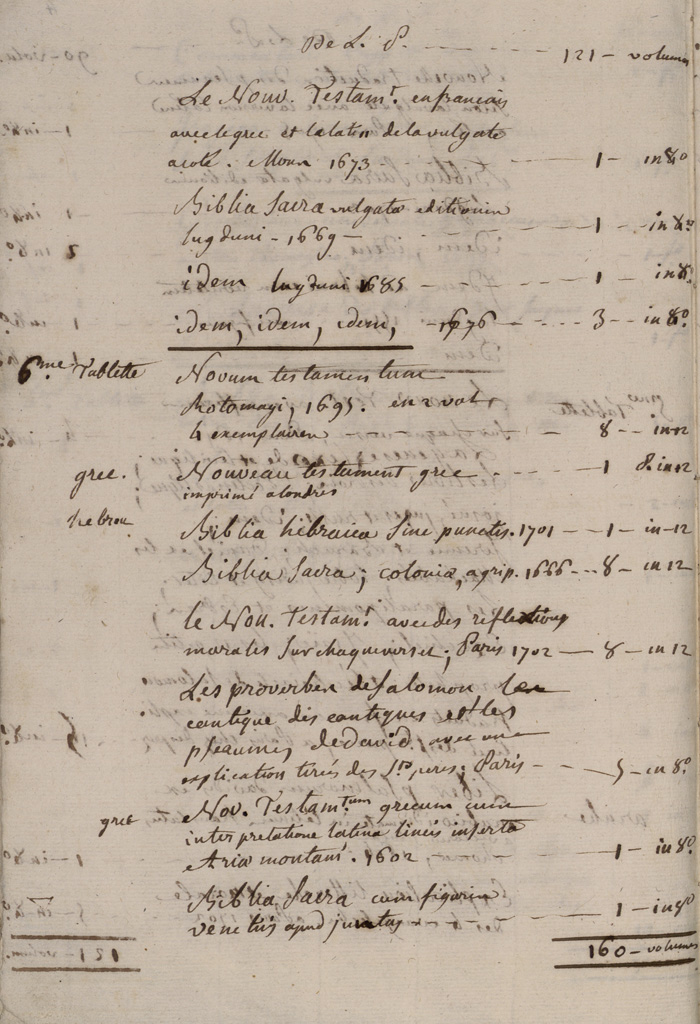 De L. P. - - - - - 121 - volumes
Le Nouv. Testamt. en francois
avec le grec et le latin de la vulgate
a coté. Mons 1673 - - - 1 - in 8o
Biblia Sacra vulgata editionin
lugduni - 1669 - - - - 1 - in 8o
idem lugduni 1685 - - - - 1 - in 8o.
idem, idem, idem, - 1676 - - - 3 - in 8o.
6.me Tablette Novum testamentum
Rotomagi, 1695. en 2 vol.
4 exemplaires - - - 8 - - in 12
grec. Nouveau testament grec - - - - - 1 in 12
imprimé a londres
hebreu Biblia hebraica Sine punctis. 1701 - - 1 - in - 12
Biblia Sacra; colonia, agrip. 1666 - - - 8 - in 12
le Nou. Testamt. avec des reflections
morales Sur chaque verset; Paris 1702 - 8 - in 12
Les proverbes de Salomon le
cantique des cantiques et les
pseaumes de david avec une
explication tirés des Sts peres; Paris - - 5 - in 8o.
grec Nov. Testamtum grecum cum
interpretatione latina lineis inserta
Aria montani. 1602 - - - 1 - in 8o.
Biblia Sacra cum figuris
venetiis apud juntas - - - - 1 -
160 - volumes